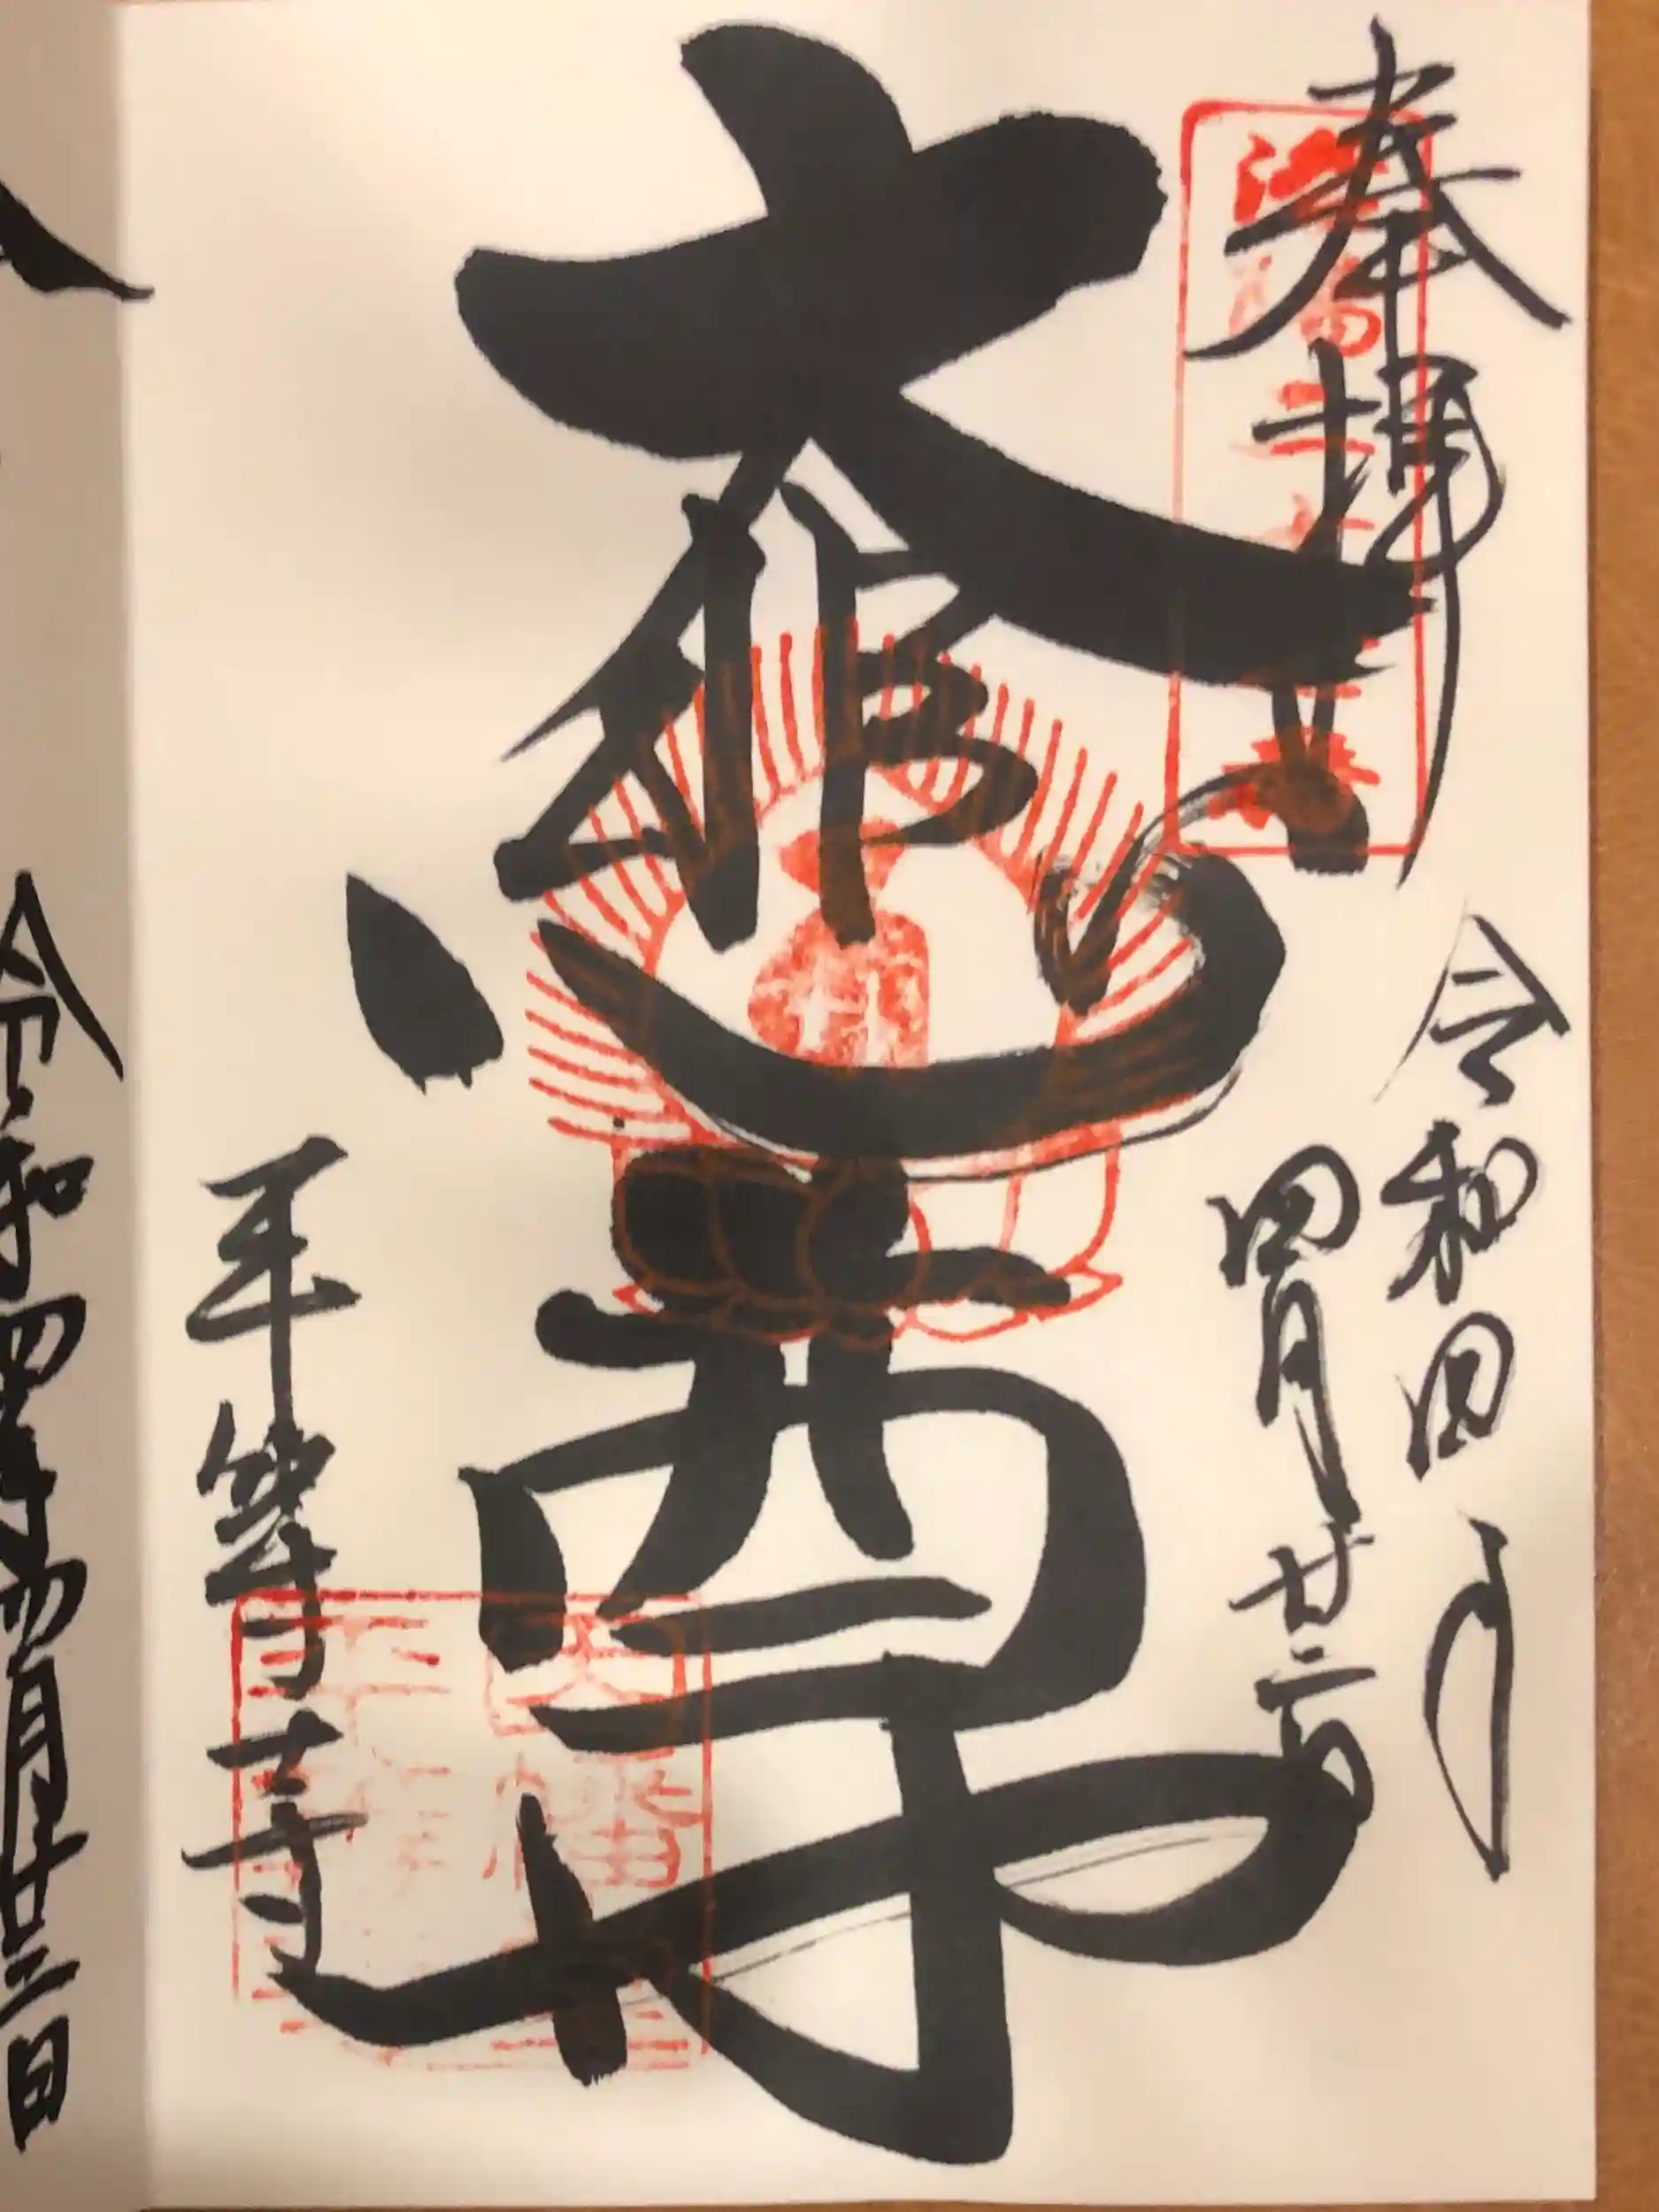 奉拝
令和四年
四月廿二日
大悲尊
平等寺
令和四年四月廿二日